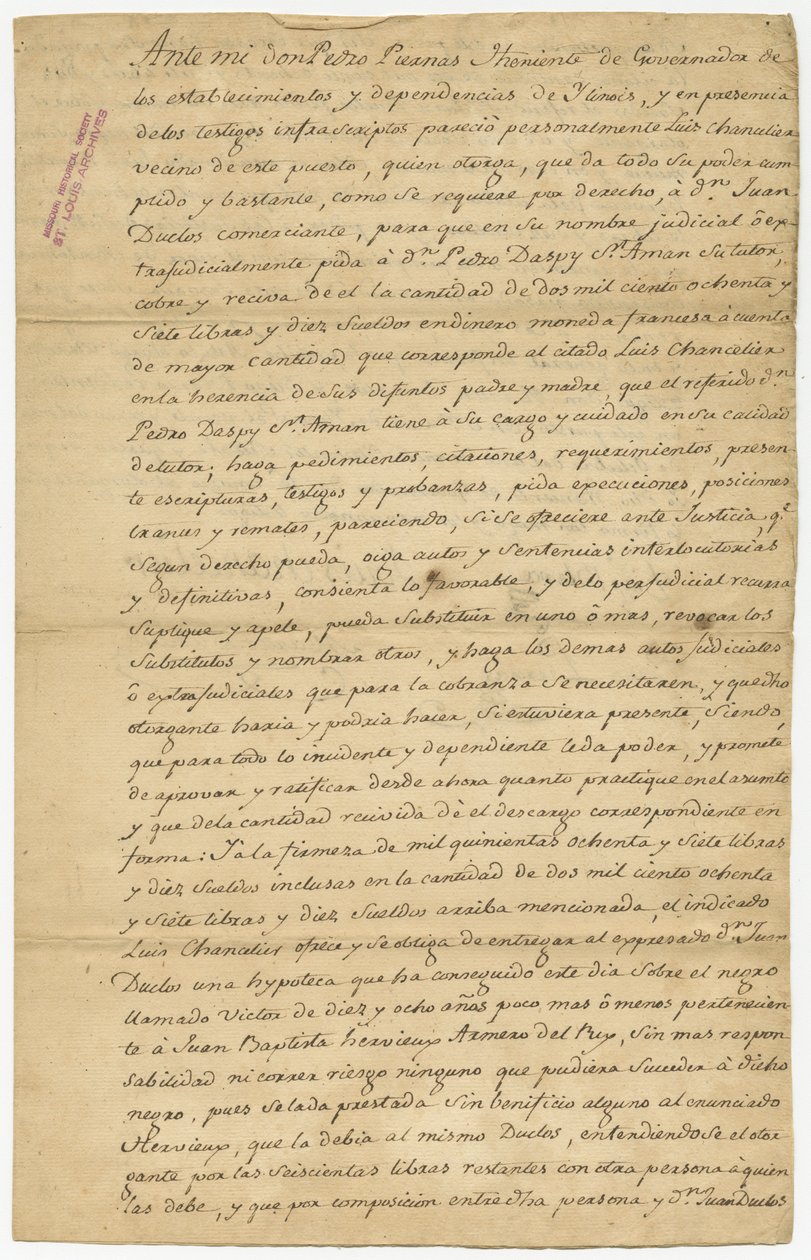 MISSOURI HISTORICAL SOCIETY
ST. LOUIS ARCHIVES
Ante mi don Pedro Piernas Theniente de Governador de
los establecimientos y dependencias de Ylinois, y en presencia
delos testigos infrascriptos pareciò personalmente Luis Chancelier
vecino de este puesto, quien otorga, que da todo su poder cum
plido y bastante, como se requiere por derecho, à dn. Juan
Duclos comerciante, para que en su nombre judicial ô ex-
trajudicialmente pida à dn. Pedro Daspy St. Aman su tutor,
cobre y reciva de el la cantidad de dos mil ciento ochenta y
siete libras y diez sueldos en dinero moneda francesa à cuenta
de mayor cantidad que corresponde al citado Luis Chancelier
en la herencia de sus difuntos padre y madre, que el referido dn.
Pedro Daspy St. Aman tiene à su cargo y cuidado en su calidad
detutor; haga pedimientos, citaciones, requerimientos, presen-
te escripturas, testigos y probanzas, pida execuciones, posiciones
trances y remates, pareciendo, si se ofreciere ante Justicia, qe.
segun derecho pueda, oiga autos y sentencias interlocutorias
y definitivas, consienta lo favorable, y delo perjudicial recurra
suplique y apele, pueda substituir en uno ô mas, revocar los
substitutos y nombrar otros, y haga los demas autos judiciales
ô extrajudiciales que para la cobranza se necesitaren, y que dho
otorgante haria y podria hacer, si estuviera presente, siendo,
que para todo lo incidente y dependiente leda poder, y promete
de aprovar y ratificar desde ahora quanto practique en el asumto
y que dela cantidad recivida dè el descargo correspondiente en
forma: Y à la firmeza de mil quinientas ochenta y siete libras
y diez sueldos inclusas en la cantidad de dos mil ciento ochenta
y siete libras y diez sueldos arriba mencionada, el indicado
Luis Chancelier ofrece y se obliga de entregar al expresado dn. Juan
Duclos una hypoteca que ha conseguido este dia sobre el negro
llamado Victor de diez y ocho años poco mas ô menos pertenecien-
te à Juan Baptista Hervieux Armero del Rey, sin mas respon-
sabilidad ni correr riesgo ninguno que pudiera suceder à dicho
negro, pues selada prestada sin benificio alguno al enunciado
Hervieux, que la debia al mismo Duclos, entendiendose el otor
gante por las seiscientas libras restantes con otra persona à quien
las debe, y que por composicion entre dha persona y dn. Juan Duclos